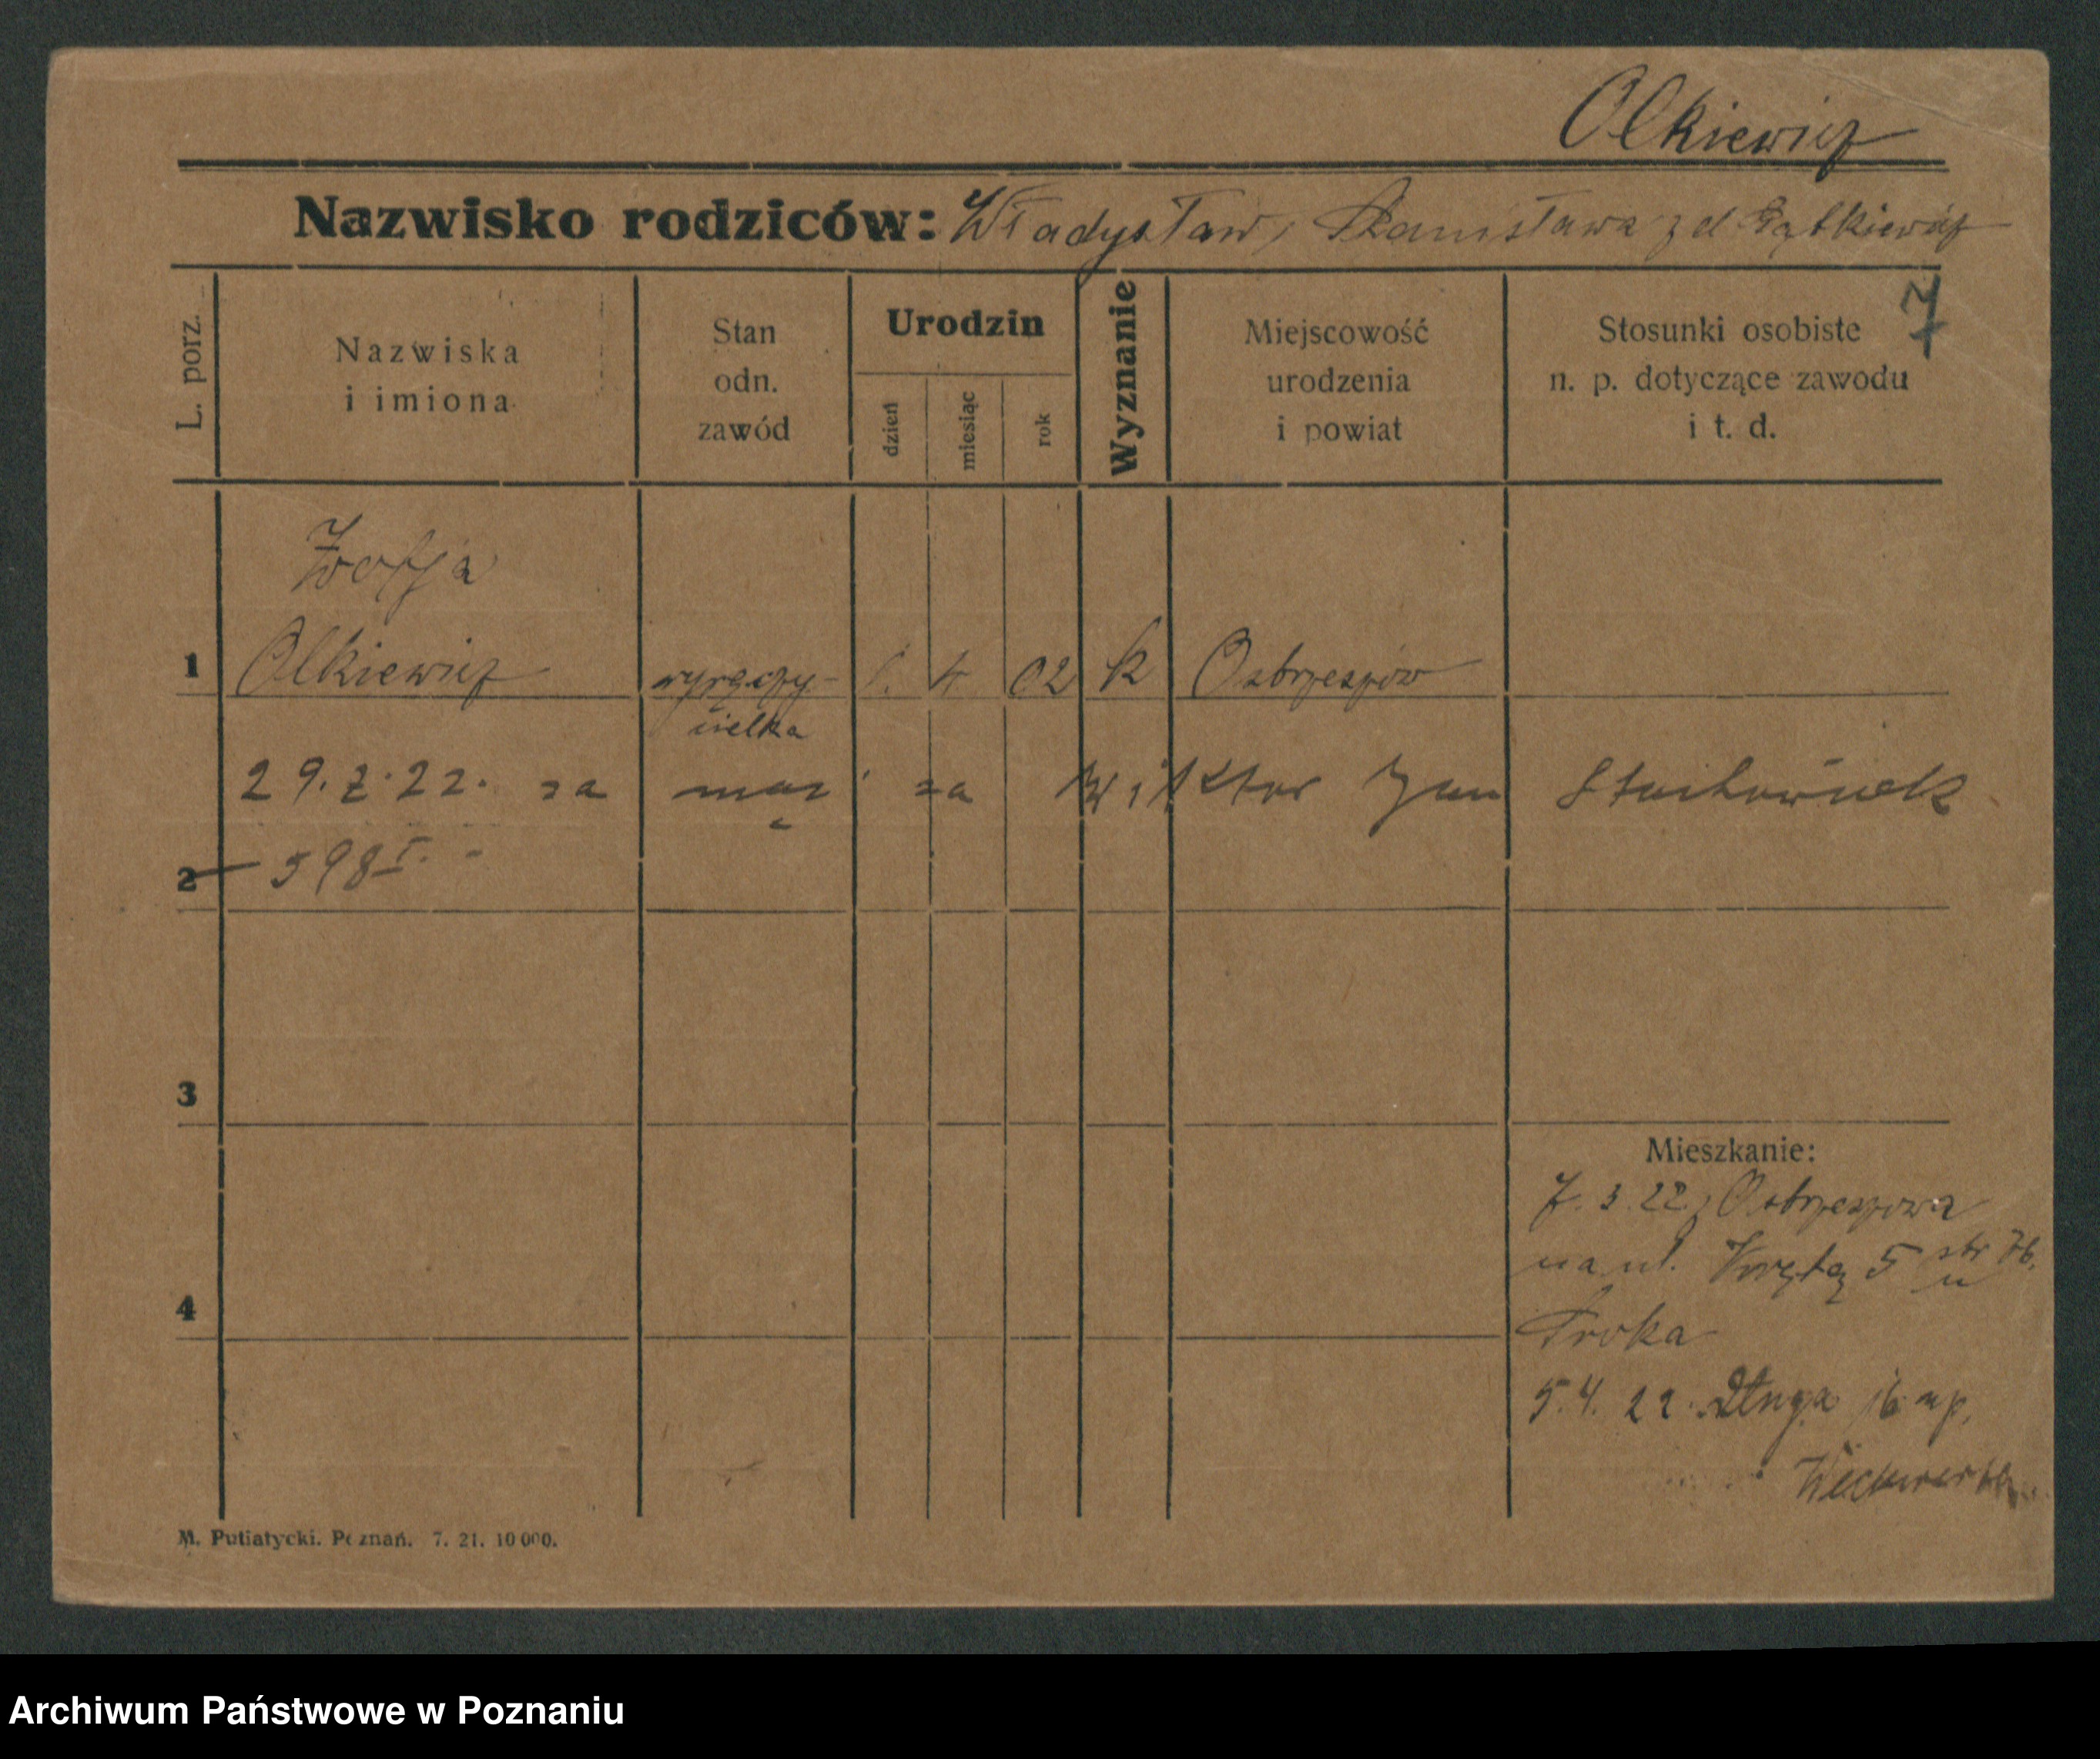 Olkiewicz
Nazwisko rodziców: Władysław, Stanisława z d
7
L. porz.
Nazwiska i imiona
Stan odn. zawód
Urodzin
dzień
miesiąc
rok
Wyznanie
Miejscowość urodzenia i powiat
Stosunki osobiste n. p. dotyczące zawodu i t. d.
Zofja
1 Olkiewicz wyręczy- 1. 4 02 k Ostrzeszów
cielka
29. 22. za mąż za Wiktor Jan
2 598 I. -
3
Mieszkanie:
7. 3. 22, Ostrzeszowa
na ul. Krętą 5
4
Troka
5. 4. 22. Długa 16 up.
M. Putiatycki. Poznań. 7. 21. 10 000.
Archiwum Państwowe w Poznaniu